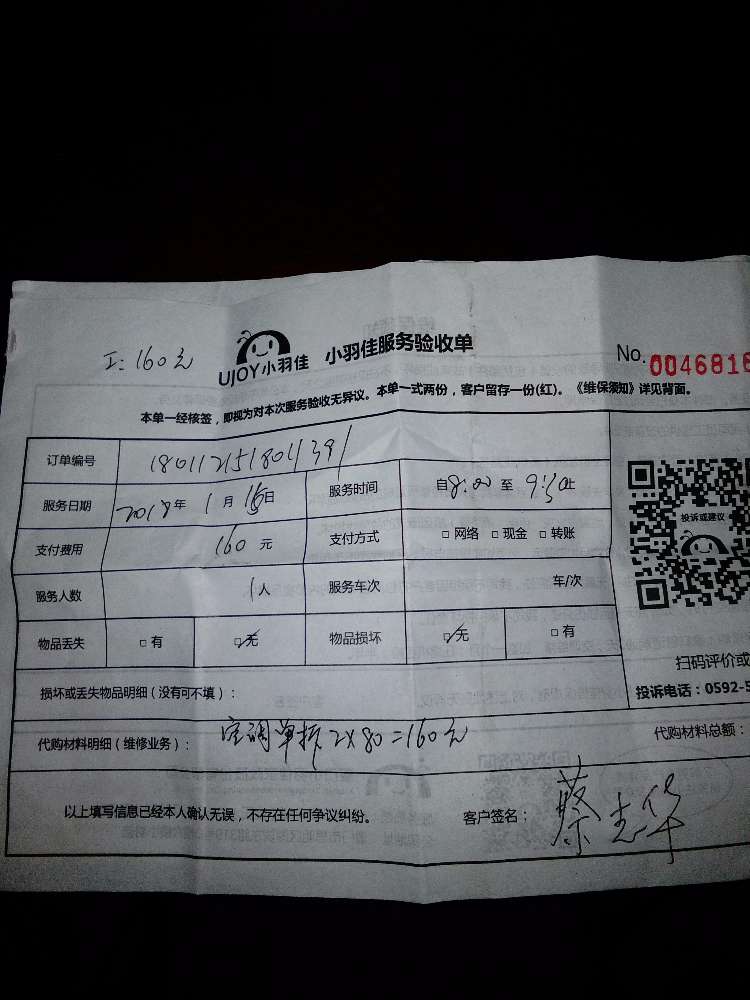 工: 160元
UJOY小羽佳 小羽佳服务验收单
No. 0046816
本单一经核签，即视为对本次服务验收无异议。本单一式两份，客户留存一份(红)。《维保须知》详见背面。
订单编号 1801121518011391
服务日期 2018年 1月 16日 服务时间 自8:00 至 9:30止
支付费用 160 元 支付方式 □网络 □现金 □转账
服务人数 1人 服务车次 车/次
物品丢失 □有 ☑无 物品损坏 ☑无 □有
投诉或建议
扫码评价或
投诉电话：0592-5
损坏或丢失物品明细（没有可不填）：
代购材料明细（维修业务）： 空调单拆 2×80=160元 代购材料总额：
以上填写信息已经本人确认无误，不存在任何争议纠纷。 客户签名： 蔡志华